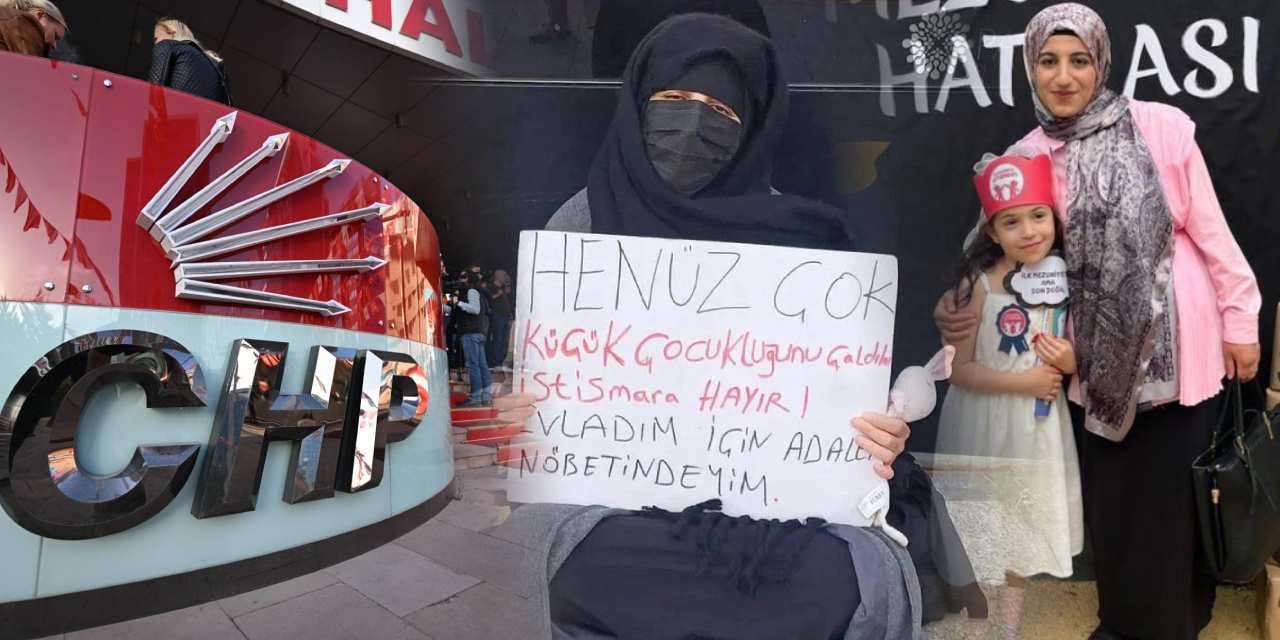 CHP
HAL
HENÜZ ÇOK
KÜÇÜK ÇOCUKLUĞUNU Çaldılar
İSTİSMARA HAYIR!
EVLADIM İÇİN ADALET
NÖBETİNDEYİM.
HAT ASI
İLK MEZUNİYETİM
AMA
SON DEĞİL